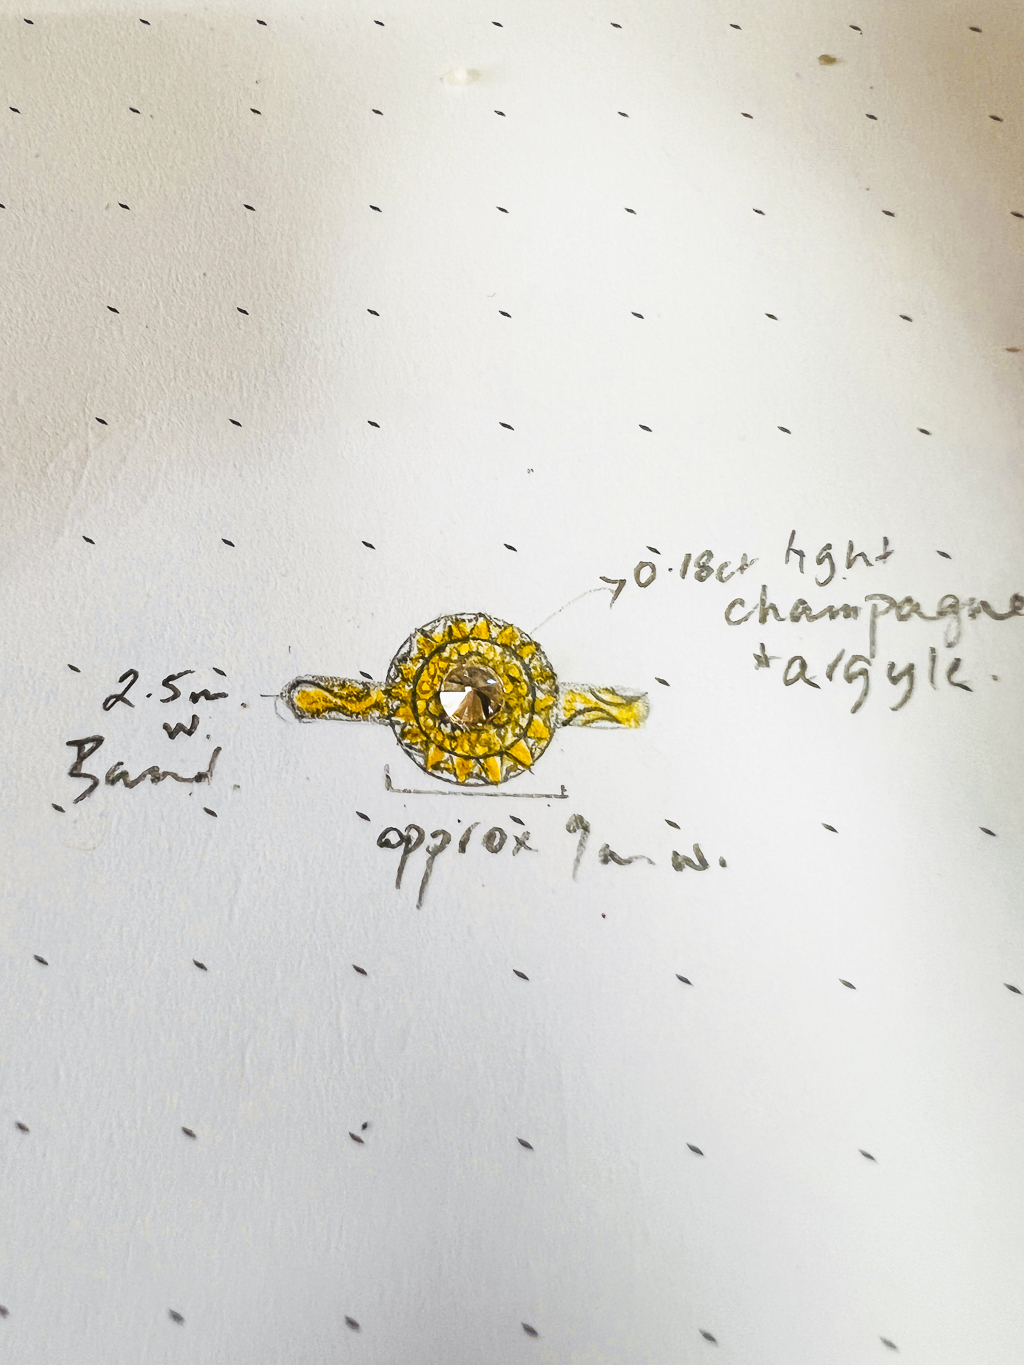 0.18ct light
champagne
*argyle.
2.5m
w.
Band.
approx 9m w.